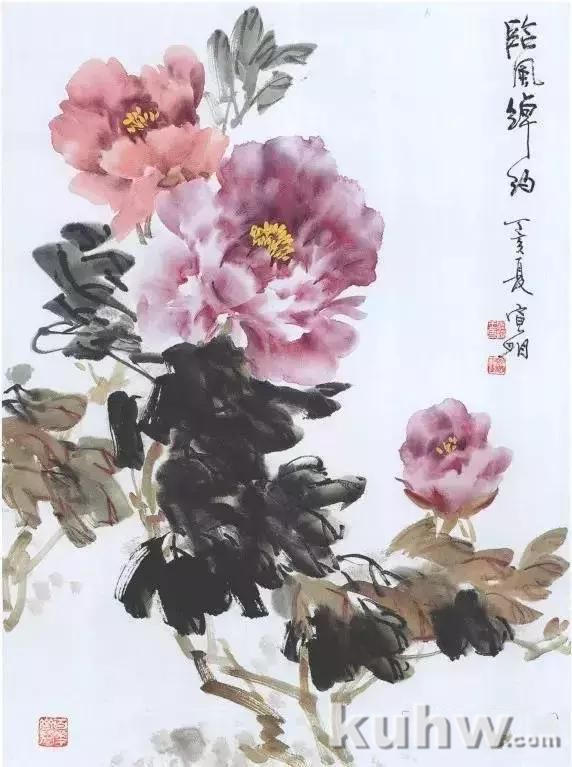 臨風綽約
丁亥夏宣明
kuhw.com